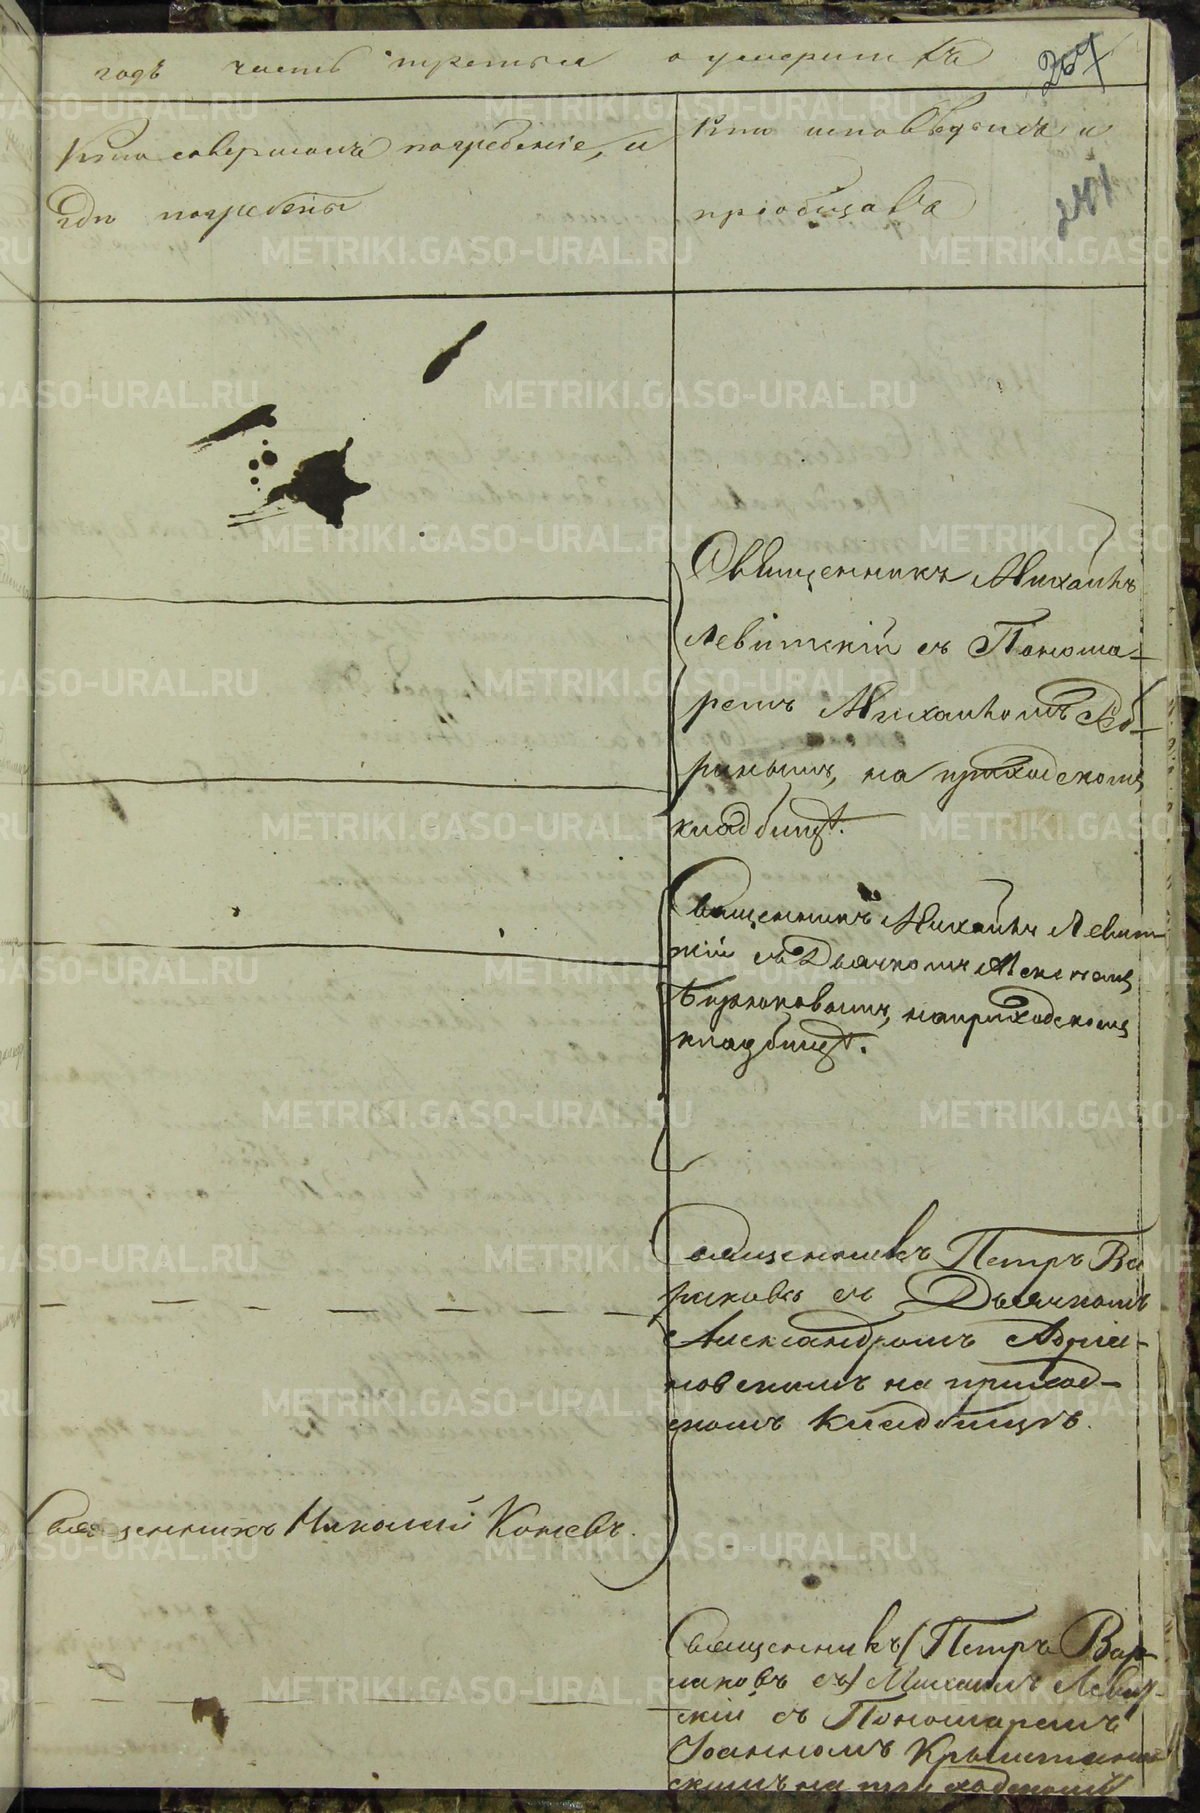 годъ часть третья о умершихъ
267
Кто совершалъ погребеніе, и
гдѣ погребены
Кто исповѣдалъ и
пріобщалъ
241
Священникъ Михаилъ
Левитскій съ Понома-
ремъ Михаиломъ
на приходскомъ
кладбищѣ.
Священникъ Михаилъ Левит
скій съ Дьячкомъ Алексѣемъ
Бирюковымъ, на приходскомъ
кладбищѣ.
Священникъ Петръ Ва
раковъ съ Дьячкомъ
Александромъ Адріа-
новскимъ на приход-
скомъ кладбищѣ.
Священникъ Николай Коневъ.
Священникъ (Петръ Вар
лаковъ съ) Михаилъ Левит-
скій съ Пономаремъ
Іоанномъ
скимъ на приходскомъ
METRIKI.GASO-URAL.RU